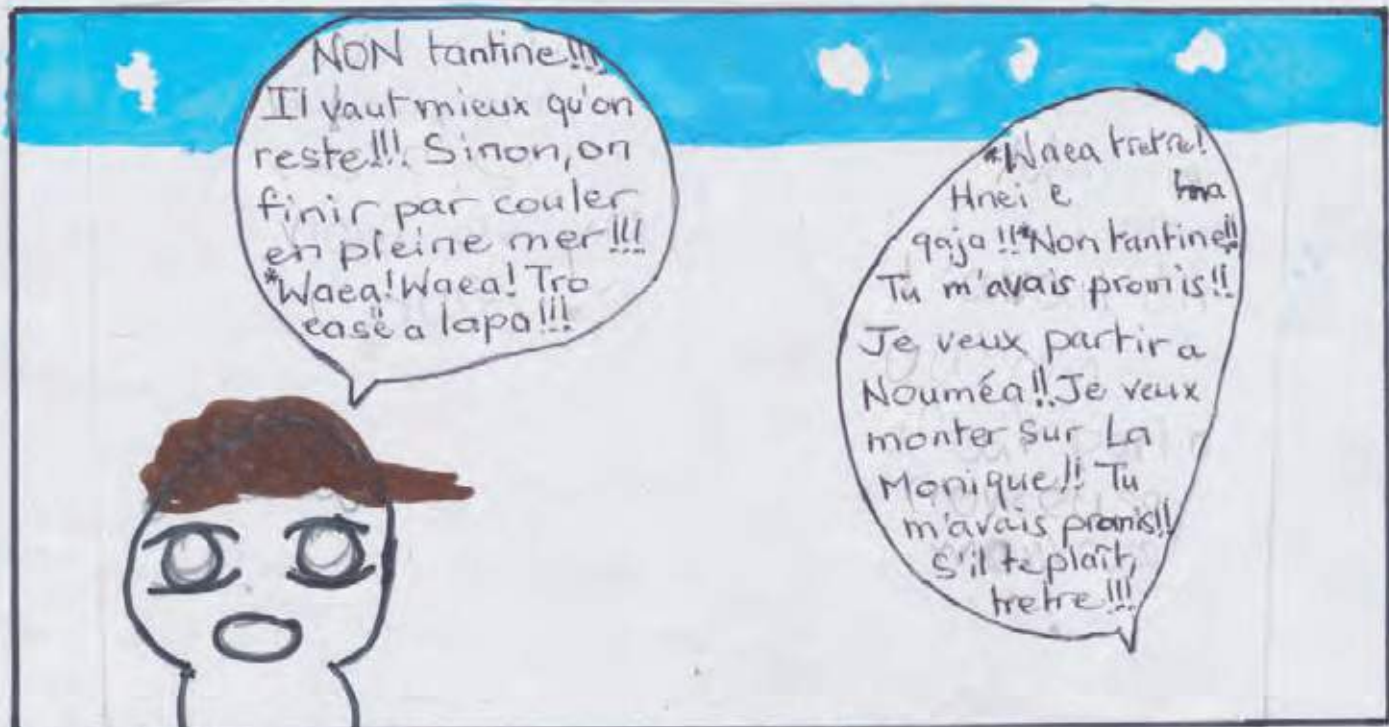 NON tantine!!!
Il vaut mieux qu'on
reste!!! Sinon, on
finir par couler
en pleine mer!!!
*Waea! Waea! Tro
easë a lapa!!!
*Waea tretre!
Hnei e
qaja!!*Non tantine!!
Tu m'avais promis!!
Je veux partir a
Nouméa!! Je veux
monter sur La
Monique!! Tu
m'avais promis!!
S'il te plaît,
tretre!!!